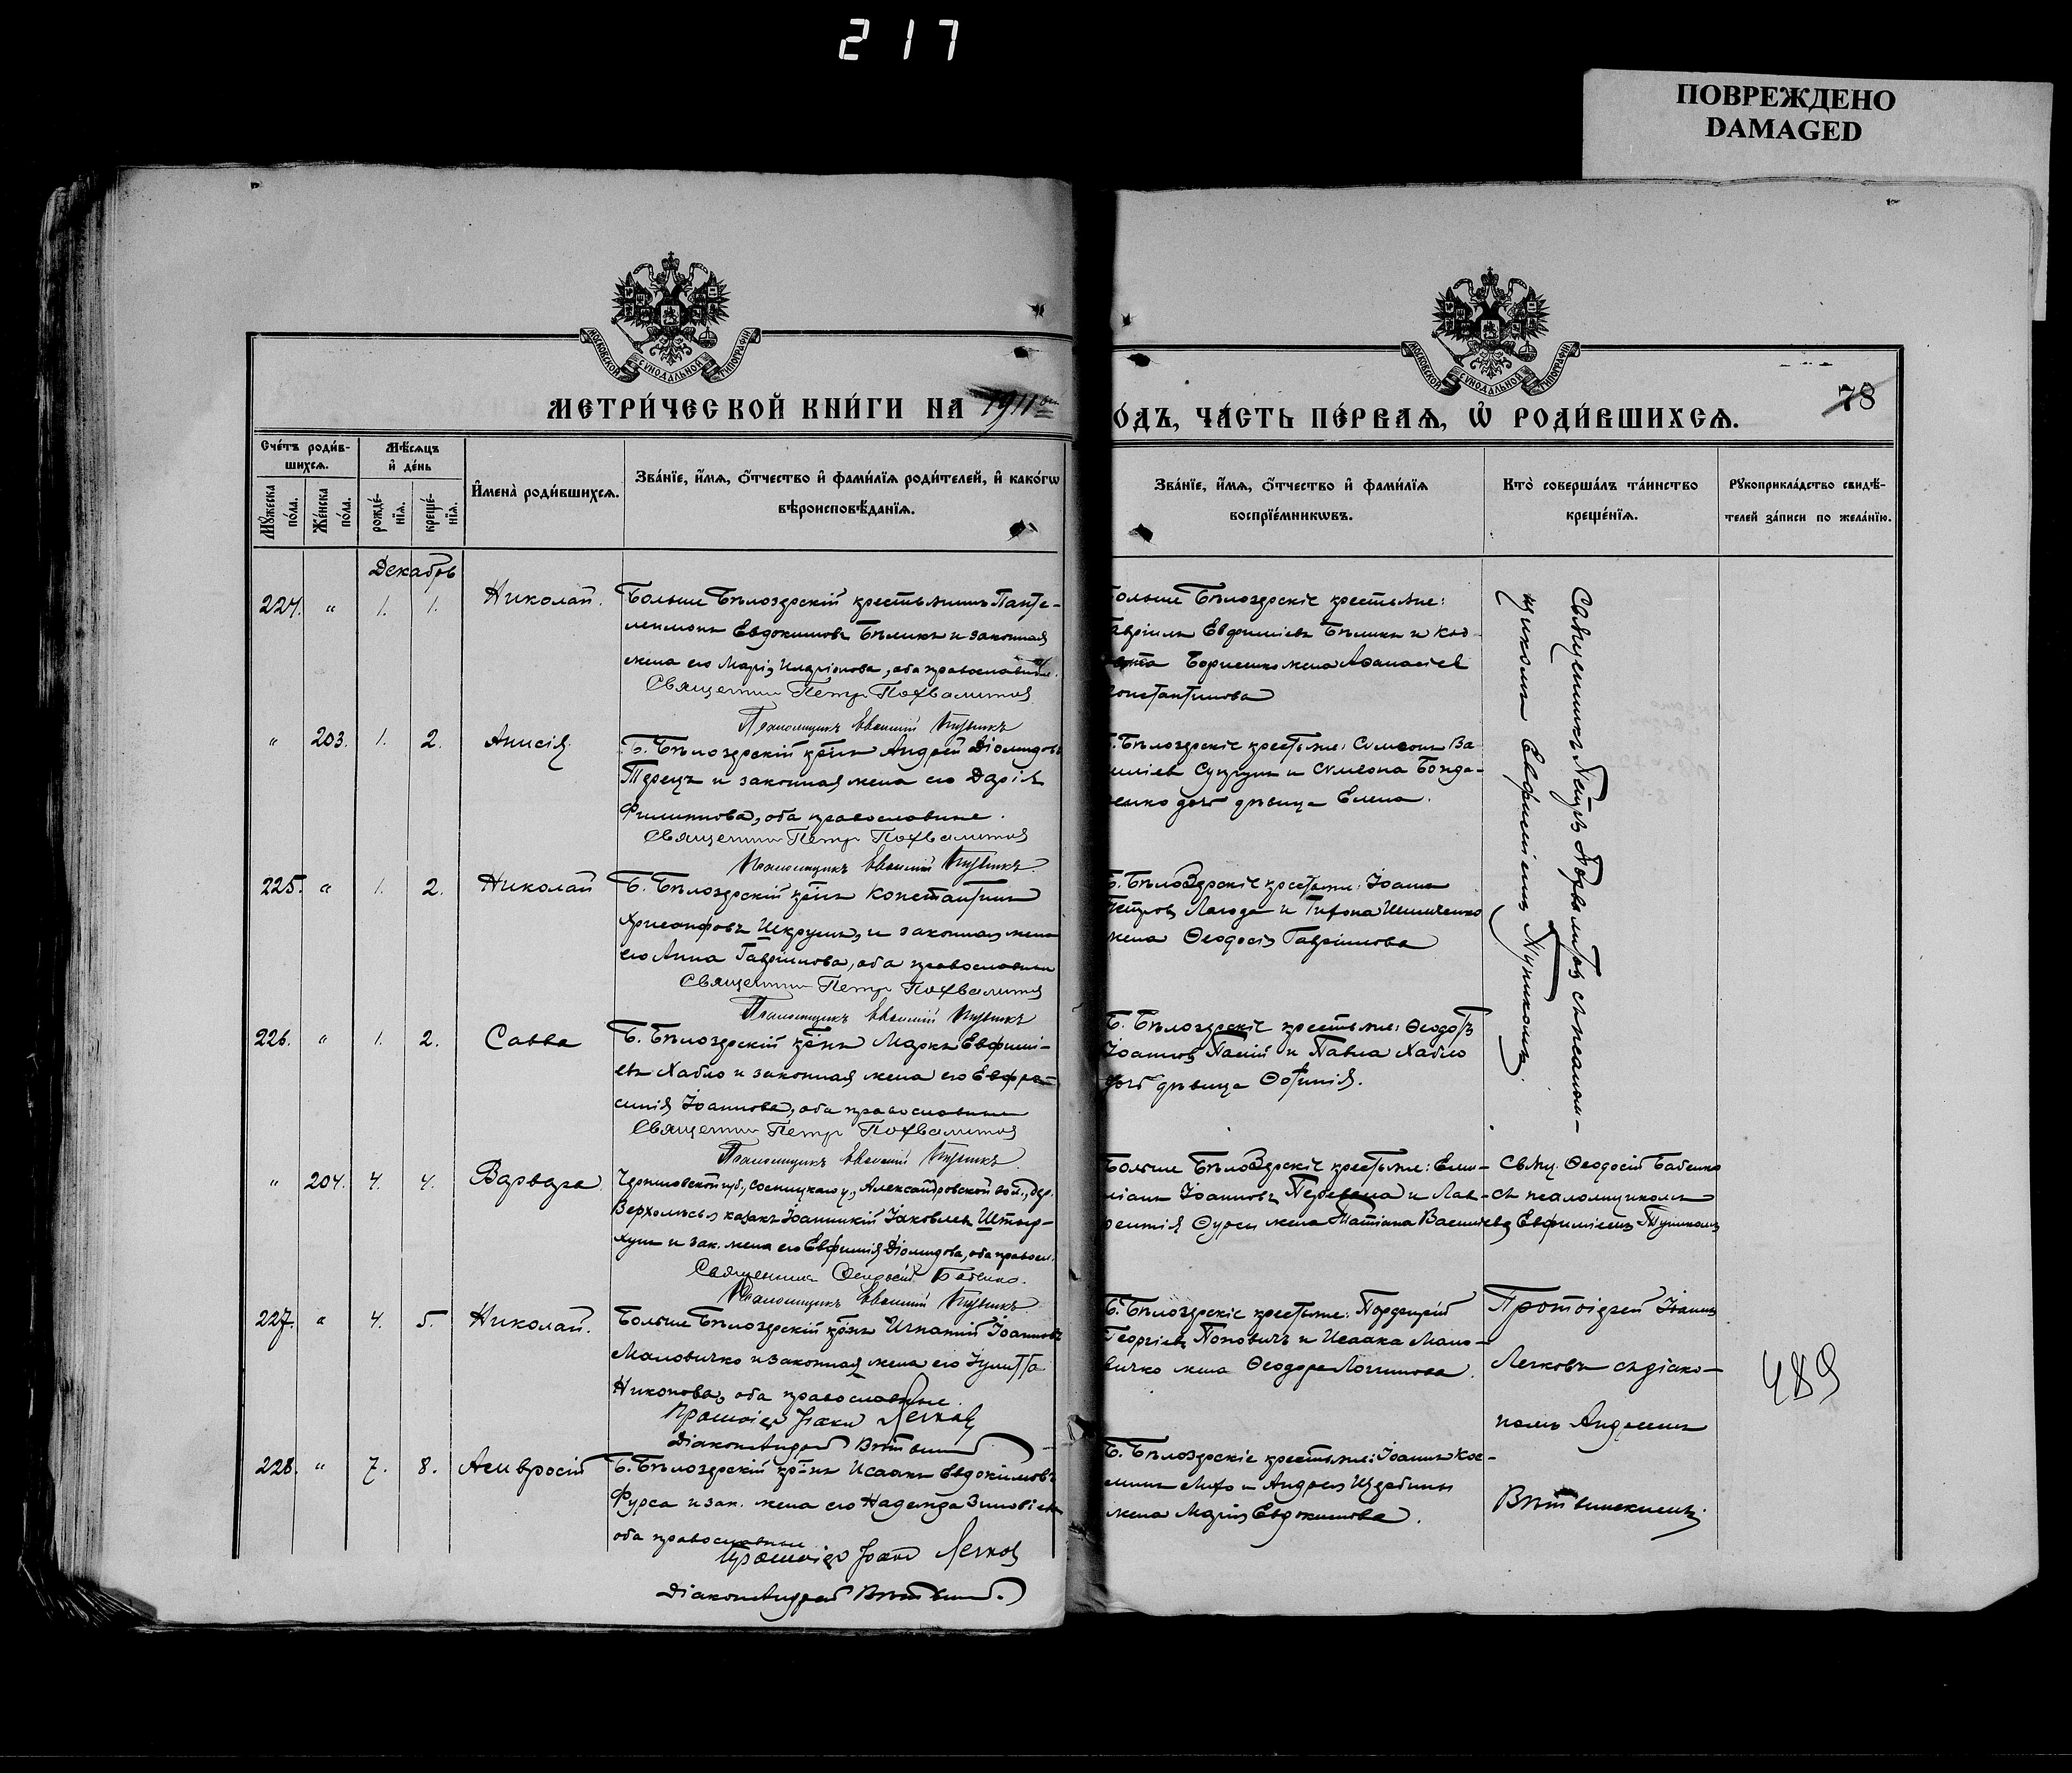 217
ПОВРЕЖДЕНО
DAMAGED
МОСКОВСКОЙ СѴНОДАЛЬНОЙ ТИПОГРАФІИ
МОСКОВСКОЙ СѴНОДАЛЬНОЙ ТИПОГРАФІИ
78
МЕТРИ́ЧЕСКОЙ КНИ́ГИ НА 1911
ОДЪ, ЧА́СТЬ ПЕ́РВАЯ, Ѿ РОДИ́ВШИХСѦ.
Сче́тъ роди́в-
шихсѧ.
Мꙋ́жеска по́ла.
Же́нска по́ла.
Мѣ́сѧцъ и҆ де́нь
рожде́-
нїѧ.
креще́-
нїѧ.
И҆мена̀ роди́вшихсѧ.
Зва́нїе, и҆́мѧ, ѻ҆́тчество и҆ фами́лїѧ роди́телей, и҆ како́гѡ
вѣроисповѣ́данїѧ.
Зва́нїе, и҆́мѧ, ѻ҆́тчество и҆ фами́лїѧ
воспрїе́мникѡвъ.
Кто̀ соверша́лъ та́инство
креще́нїѧ.
Рꙋкоприкла́дство свидѣ́-
телей за́писи по жела́нїю.
Декабрь
224. " 1. 1. Николай.
Больше Бѣлозерскій крестьянинъ Панте-
леимонъ Евдокимовъ Бѣликъ и законная
жена его Марія Иларіонова, оба православные.
Священник Петр Похвалитов
Псаломщикъ Евѳимій
Больше Бѣлозерскіе крестьяне:
Гавріилъ Евфиміевъ Бѣликъ и
Борисенко жена Аѳанасія
Константинова
" 203. 1. 2. Анисія.
Б. Бѣлозерскій кр-нъ Андрей Діомидовъ
Терецъ и законная жена его Дарія
Филиппова, оба православные.
Священник Петр Похвалитов
Псаломщикъ Евѳимій
Б. Бѣлозерскіе крестьяне: Симеонъ Ва-
силіев Супрун и Симеона Бонда-
ренко дочь дѣвица Елена.
225. " 1. 2. Николай
Б. Бѣлозерскій кр-нъ Константинъ
Хрисанфовъ Шкрумъ, и законная жена
его Анна Гавріилова, оба православные
Священник Петр Похвалитов
Псаломщикъ Евѳимій
Б. Бѣлозерскіе крестьяне: Іоаннъ
Петров Лагода и Тихона
жена Ѳеодосія Гавріилова
226. " 1. 2. Савва
Б. Бѣлозерскій кр-нъ Маркъ Евфимі-
евъ Хабло и законная жена его Евфро-
синія Іоаннова, оба православные
Священник Петр Похвалитов
Псаломщикъ Евѳимій
Б. Бѣлозерскіе крестьяне: Ѳеодотъ
Іоаннов Палій и Павла Хабло
дочь дѣвица Фотинія.
Священникъ Петръ Похвалитовъ съ псалом-
щикомъ Евфиміемъ
" 204. 4. 4. Варвара.
Черниговской губ., Сосницкаго у., Александровской вол., дер.
Верхолѣсья казакъ Іоанникій Іаковлев
и зак. жена его Евфимія Діомидова, оба правосл.
Священник Ѳеодосій Бабенко.
Псаломщикъ Евѳимій
Больше Бѣлозерскіе крестьяне: Еми-
ліанъ Іоанновъ и Лав-
рентія Фурсы жена Татіана Василіева
Свящ. Ѳеодосій Бабенко
съ псаломщикомъ
Евфиміемъ
227. " 4. 5. Николай.
Больше Бѣлозерскій кр-нъ Игнатій Іоанновъ
Маловичко и законная жена его Іулитта
Никонова, оба православные.
Протоіер Іоанн Легков
Діаконъ Андрей
Б. Бѣлозерскіе крестьяне: Порфирій
Георгіевъ Поповичъ и Исаака Мало-
вичко жена Ѳеодора Логинова.
Протоіерей Іоаннъ
Легковъ съ діако-
номъ Андреемъ
489
228. " 7. 8. Амвросій
Б. Бѣлозерскій кр-нъ Исаакъ Евдокимовъ
Фурса и зак. жена его Надежда Зиновіева
оба православные
Протоіер Іоанн Легков
Діаконъ Андрей
Б. Бѣлозерскіе крестьяне: Іоаннъ Кос-
минъ и Андрея
жена Марія Евдокимова.